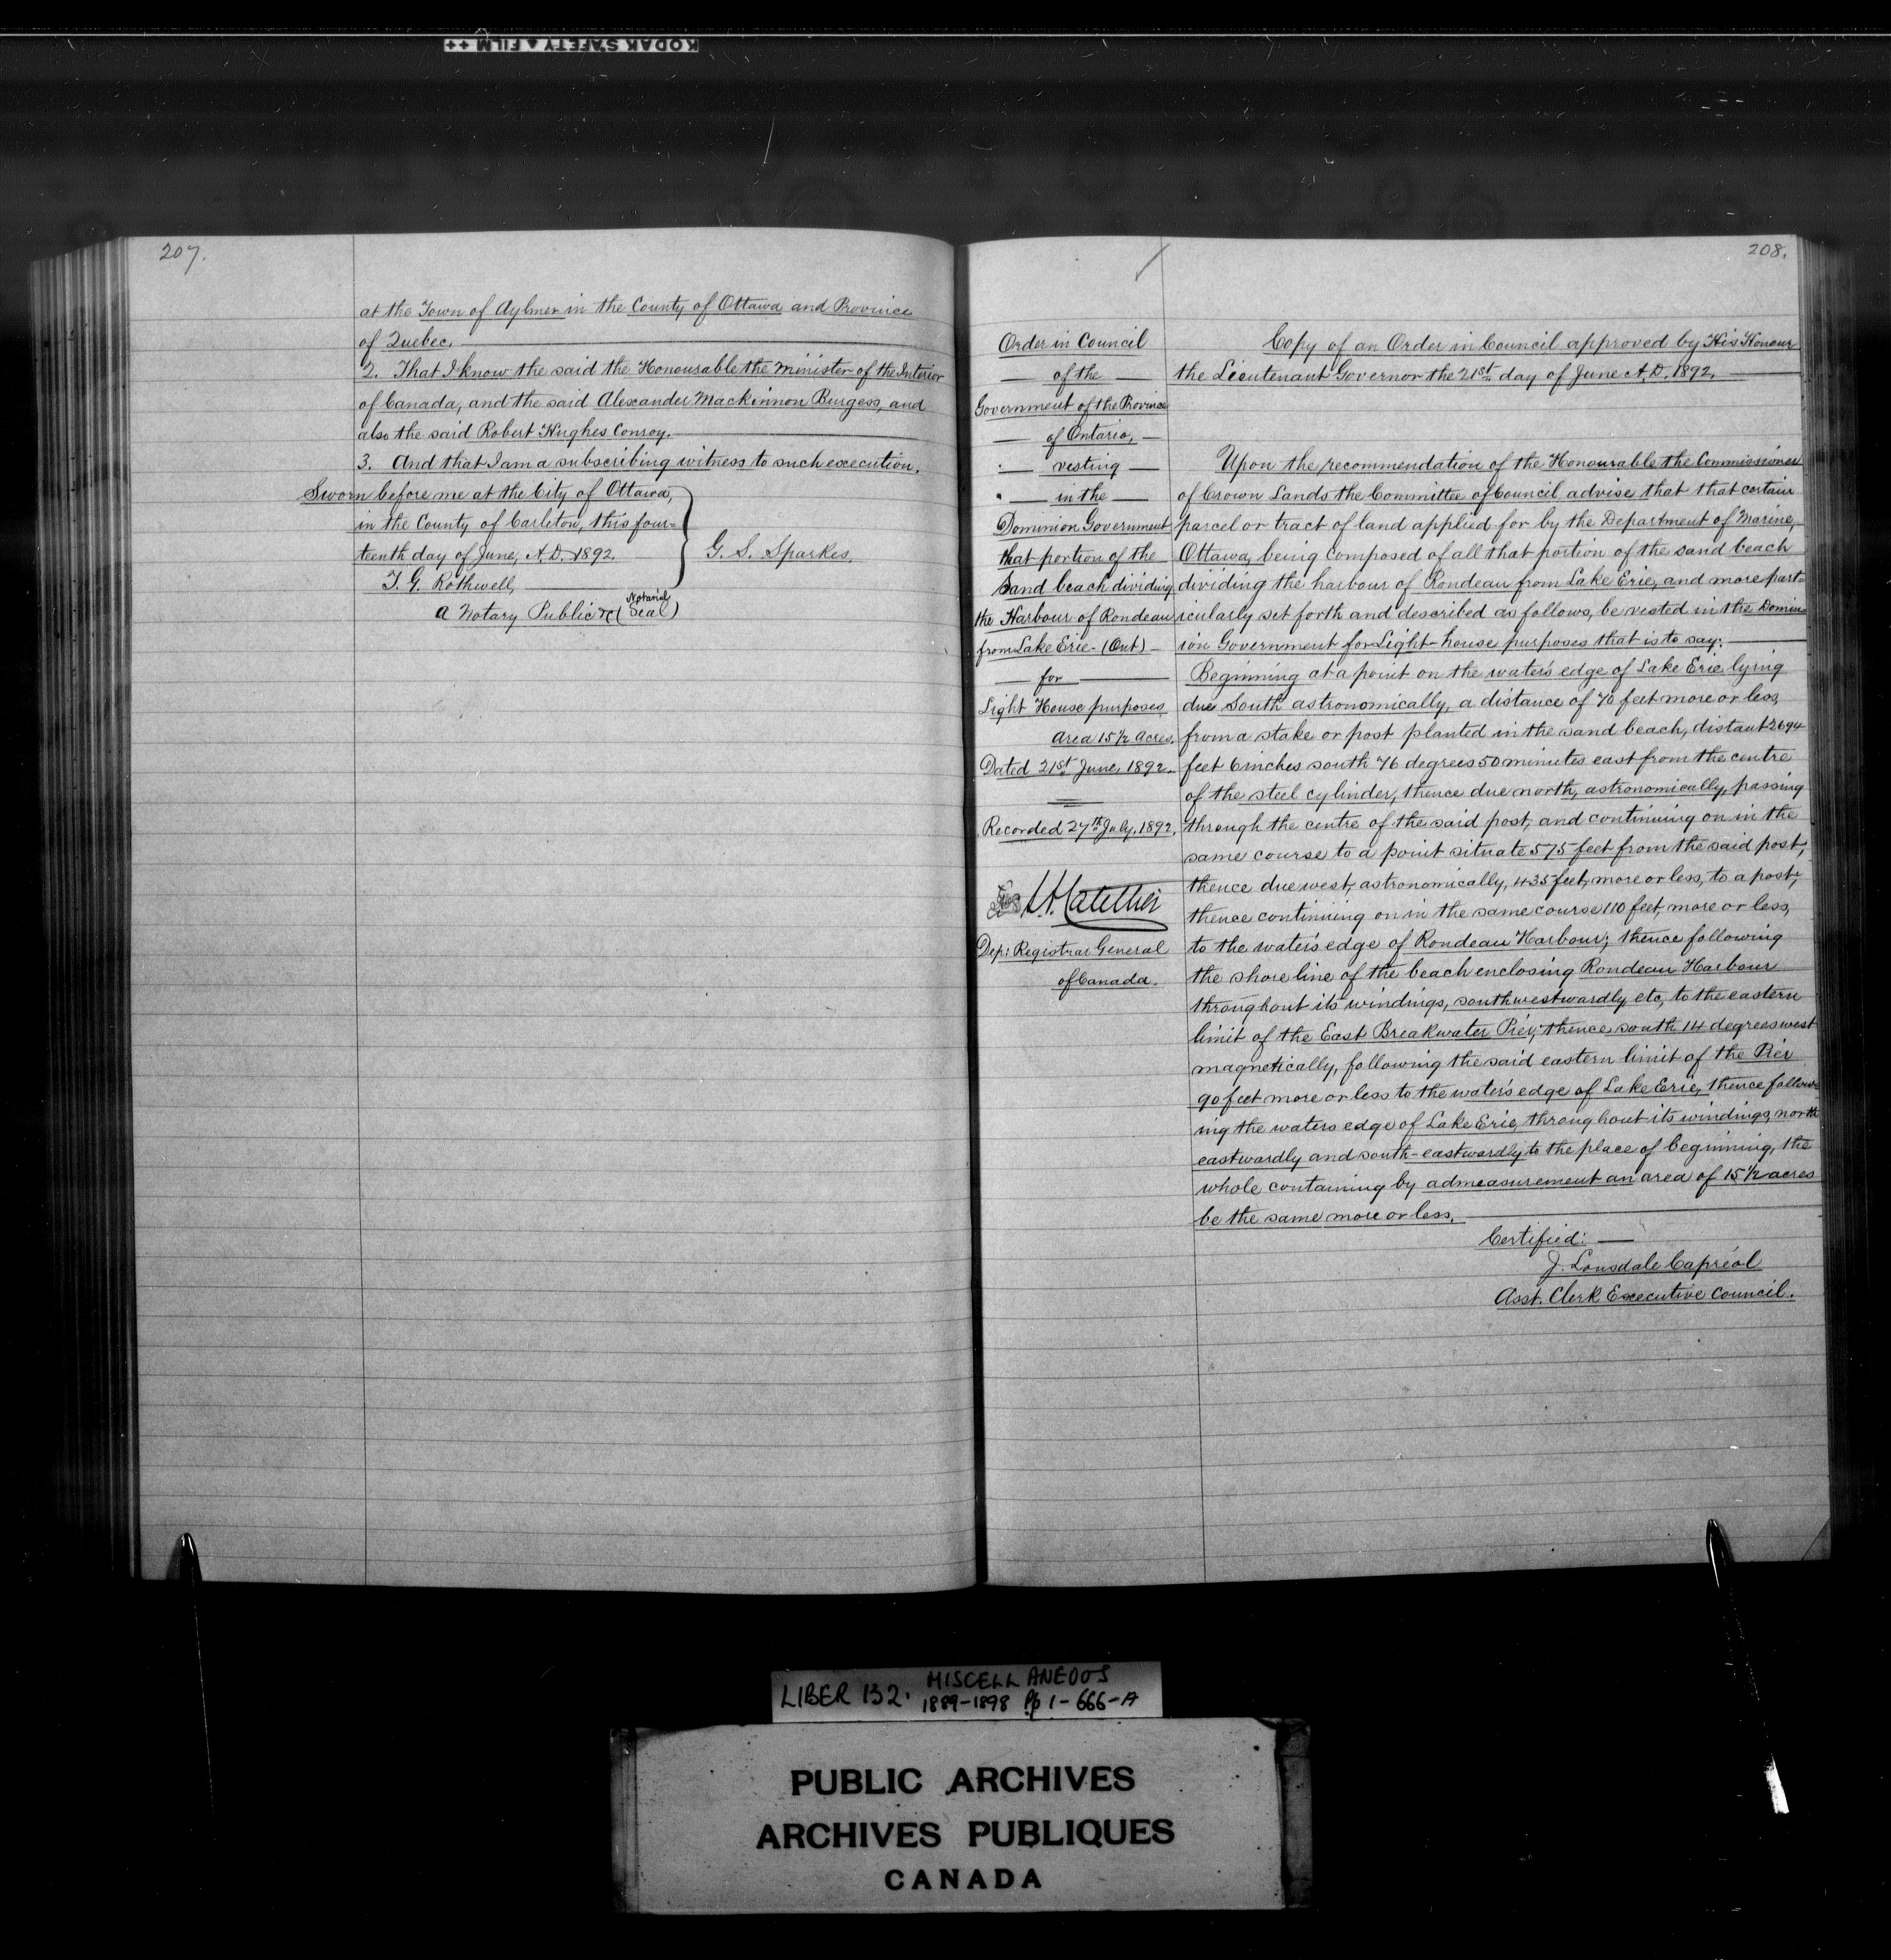 KODAK SAFETY FILM ++
207.
at the Town of Aylmer in the County of Ottawa and Province
of Quebec.
2. That I know the said the Honourable the Minister of the Interior
of Canada, and the said Alexander Mackinnon Burgess, and
also the said Robert Hughes Conroy.
3. And that I am a subscribing witness to such execution.
Sworn before me at the City of Ottawa,
in the County of Carleton, this four=
teenth day of June, A.D. 1892.
G. S. Sparkes.
T. G. Rothwell,
a Notary Public &c (Notarial Seal)
208.
Order in Council
of the
Government of the Province
of Ontario,
vesting
in the
Dominion Government
that portion of the
Sand beach dividing
the Harbour of Rondeau
from Lake Erie - (Ont)
for
Light House purposes
Area 15 1/2 Acres.
Dated 21st June, 1892.
Recorded 27th July, 1892.
Dep: Registrar General
of Canada.
Copy of an Order in Council approved by His Honour
the Lieutenant Governor the 21st day of June A.D. 1892.
Upon the recommendation of the Honourable the Commissioner
of Crown Lands the Committee of Council advise that that certain
parcel or tract of land applied for by the Department of Marine,
Ottawa, being composed of all that portion of the sand beach
dividing the harbour of Rondeau from Lake Erie, and more part=
icularly set forth and described as follows, be vested in the Domin=
ion Government for Light-house purposes that is to say:
Beginning at a point on the water's edge of Lake Erie lying
due South astronomically, a distance of 70 feet more or less,
from a stake or post planted in the sand beach, distant 2694
feet 6 inches south 76 degrees 50 minutes east from the centre
of the steel cylinder, thence due north, astronomically, passing
through the centre of the said post, and continuing on in the
same course to a point situate 575 feet from the said post,
thence due west, astronomically, 435 feet, more or less, to a post,
thence continuing on in the same course 110 feet, more or less,
to the water's edge of Rondeau Harbour; thence following
the shore line of the beach enclosing Rondeau Harbour
throughout its windings, southwestwardly etc, to the eastern
limit of the East Breakwater Pier; thence south 14 degrees west
magnetically, following the said eastern limit of the Pier
90 feet more or less to the water's edge of Lake Erie, thence follow=
ing the waters edge of Lake Erie throughout its windings, north
eastwardly and south-eastwardly to the place of beginning, the
whole containing by admeasurement an area of 15 1/2 acres
be the same more or less.
Certified:
J. Lonsdale Capréol
Asst. Clerk Executive Council.
LIBER 132. MISCELLANEOUS
1889-1898 Pp 1-666-A
PUBLIC ARCHIVES
ARCHIVES PUBLIQUES
CANADA